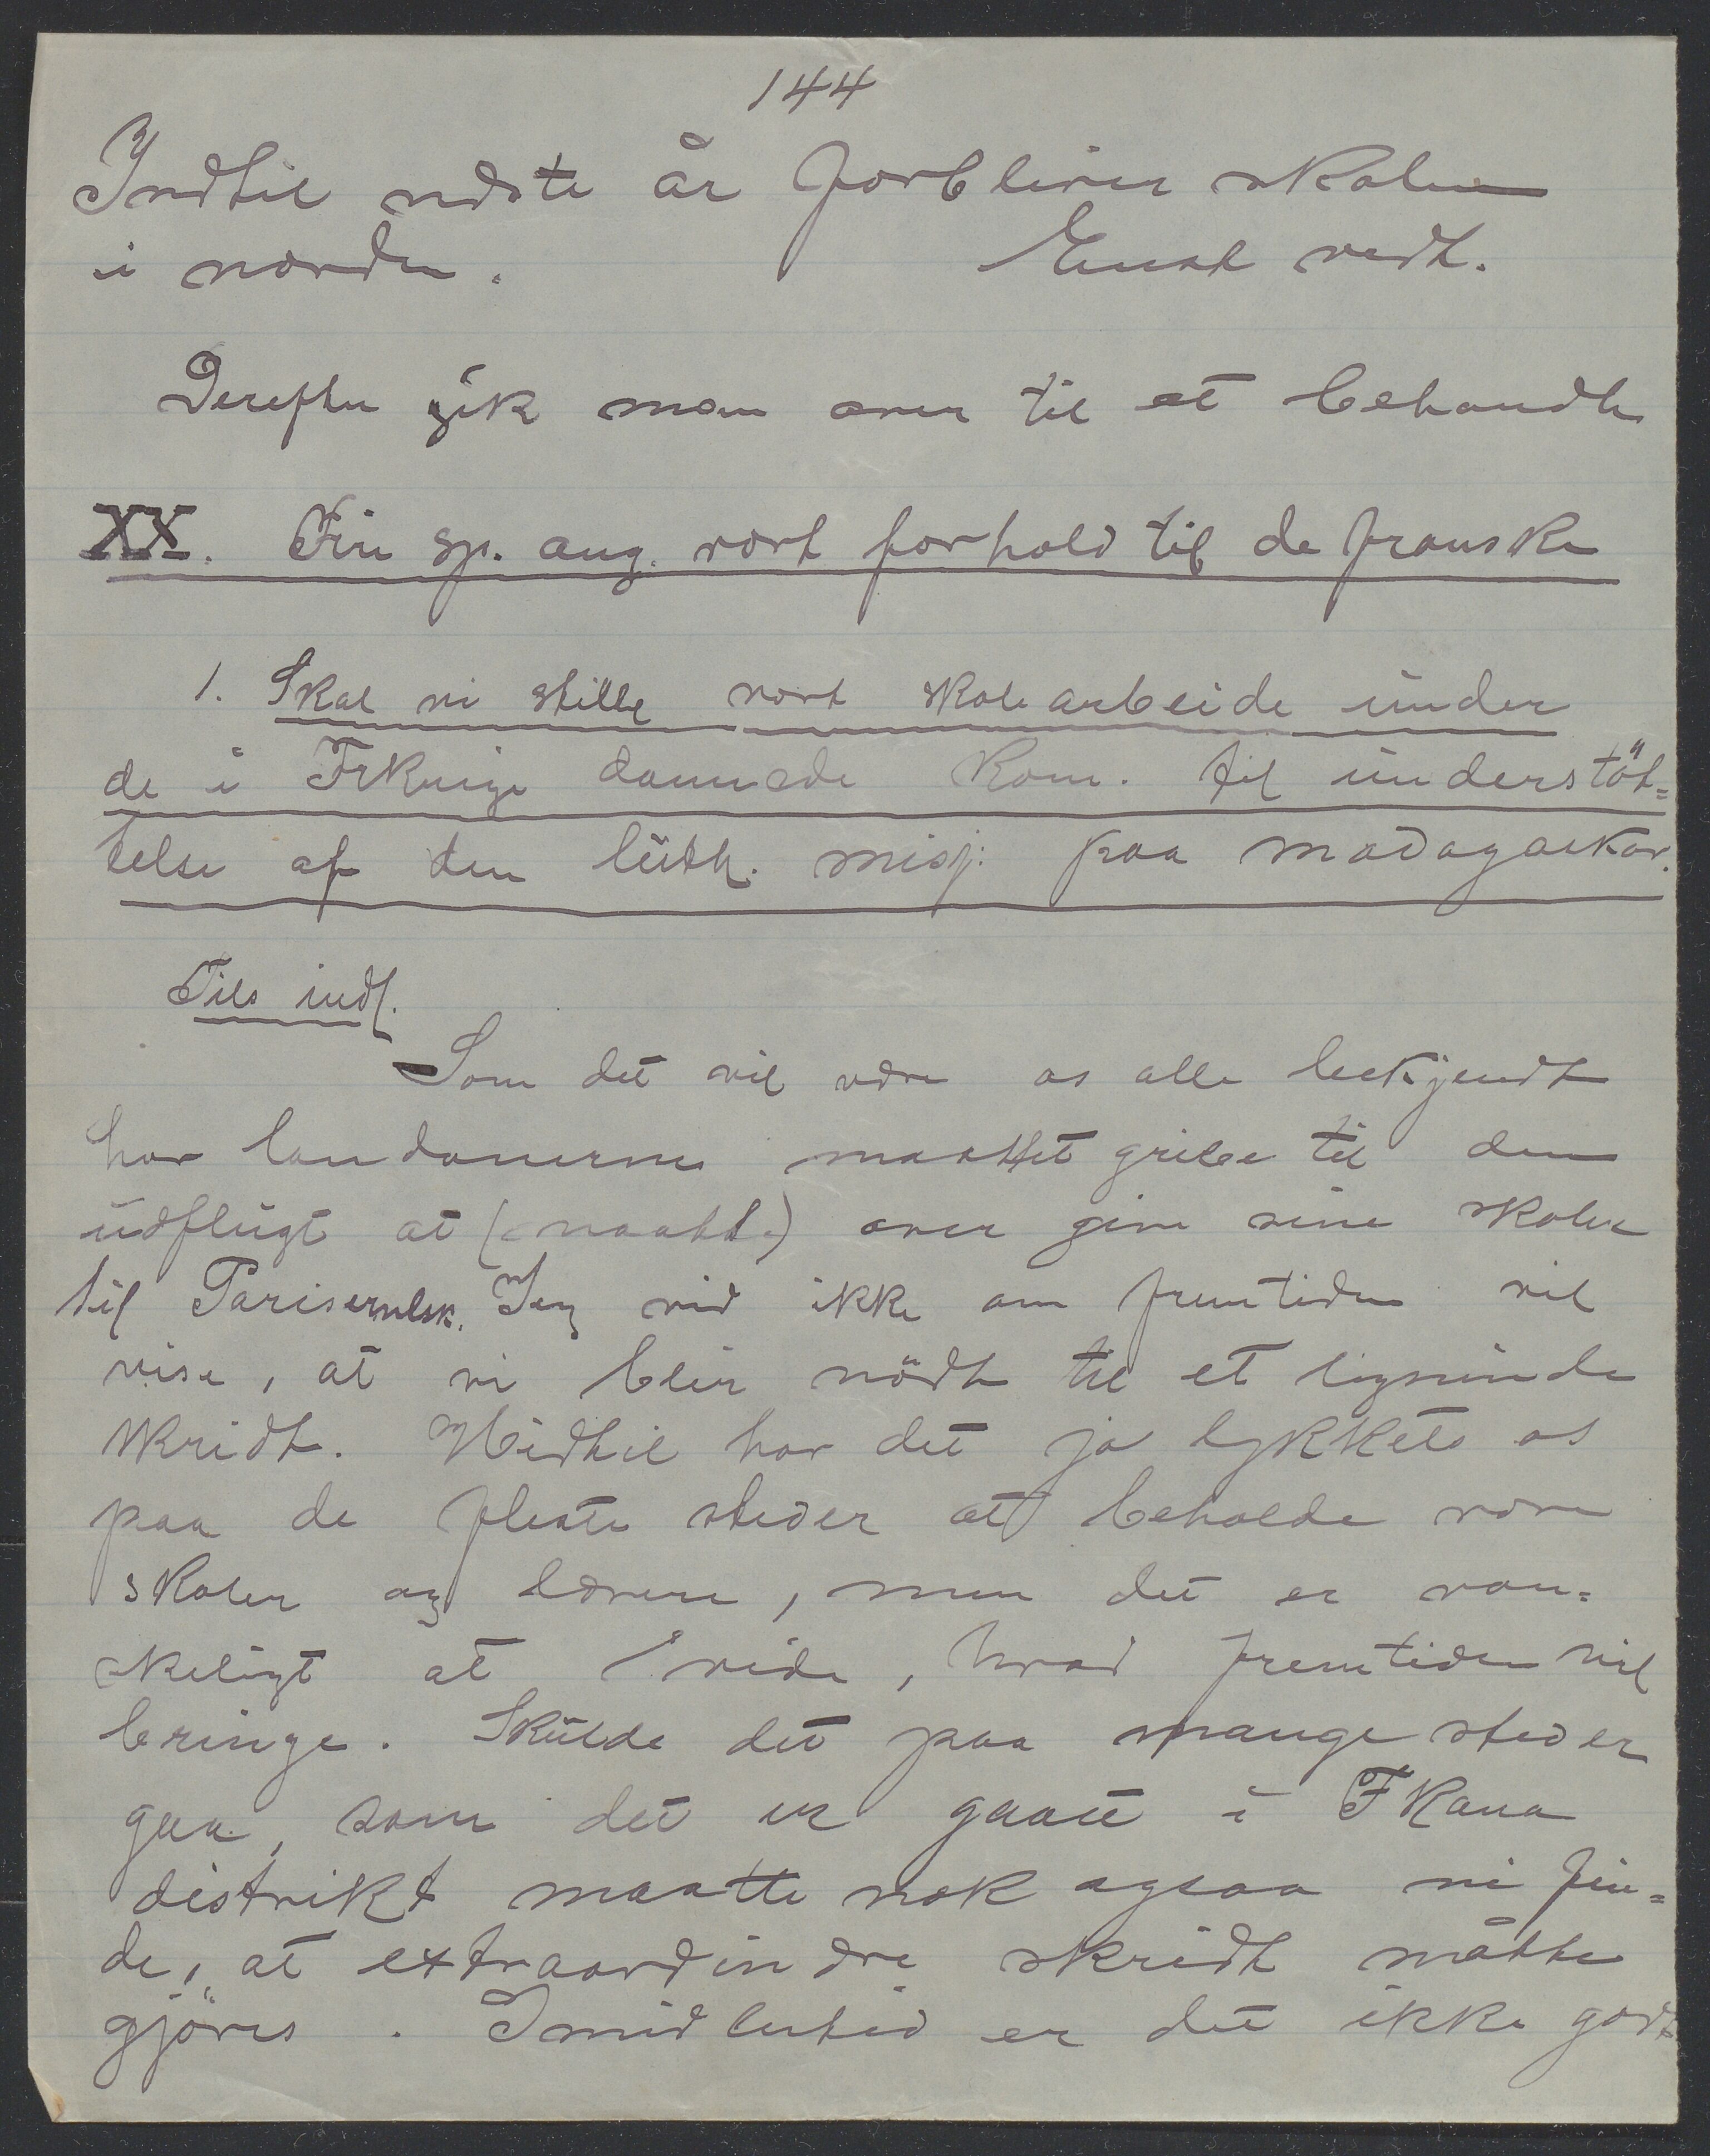 144
Indtil næste år forbliver skolen
i norden. Enst vedt.
Derefter gik man over til at behandle
XX. Fire sp. ang. vort forhold til de franske
1. Skal vi stille vort skolearbeide under
de i Frkrige dannede Kom. til understöt=
telse af den luth. misj. paa Madagaskar.
Tils indl.
Som det vil være os alle bekjendt
har londonerne maattet gribe til den
udflugt at (maatte) over give sine skoler
til Parisermsk. Jeg ved ikke om fremtiden vil
vise, at vi blir nödt til et lignende
skridt. Hidtil har det jo lykkets os
paa de fleste steder at beholde vore
skoler og lærere, men det er van=
skeligt at vide, hvad fremtiden vil
bringe. Skulde det paa mange steder
gaa, som det er gaaet i FKana
distrikt maatte nok ogsaa vi fin=
de, at extraordinære skridt måtte
gjöres. Imidlertid er det ikke godt